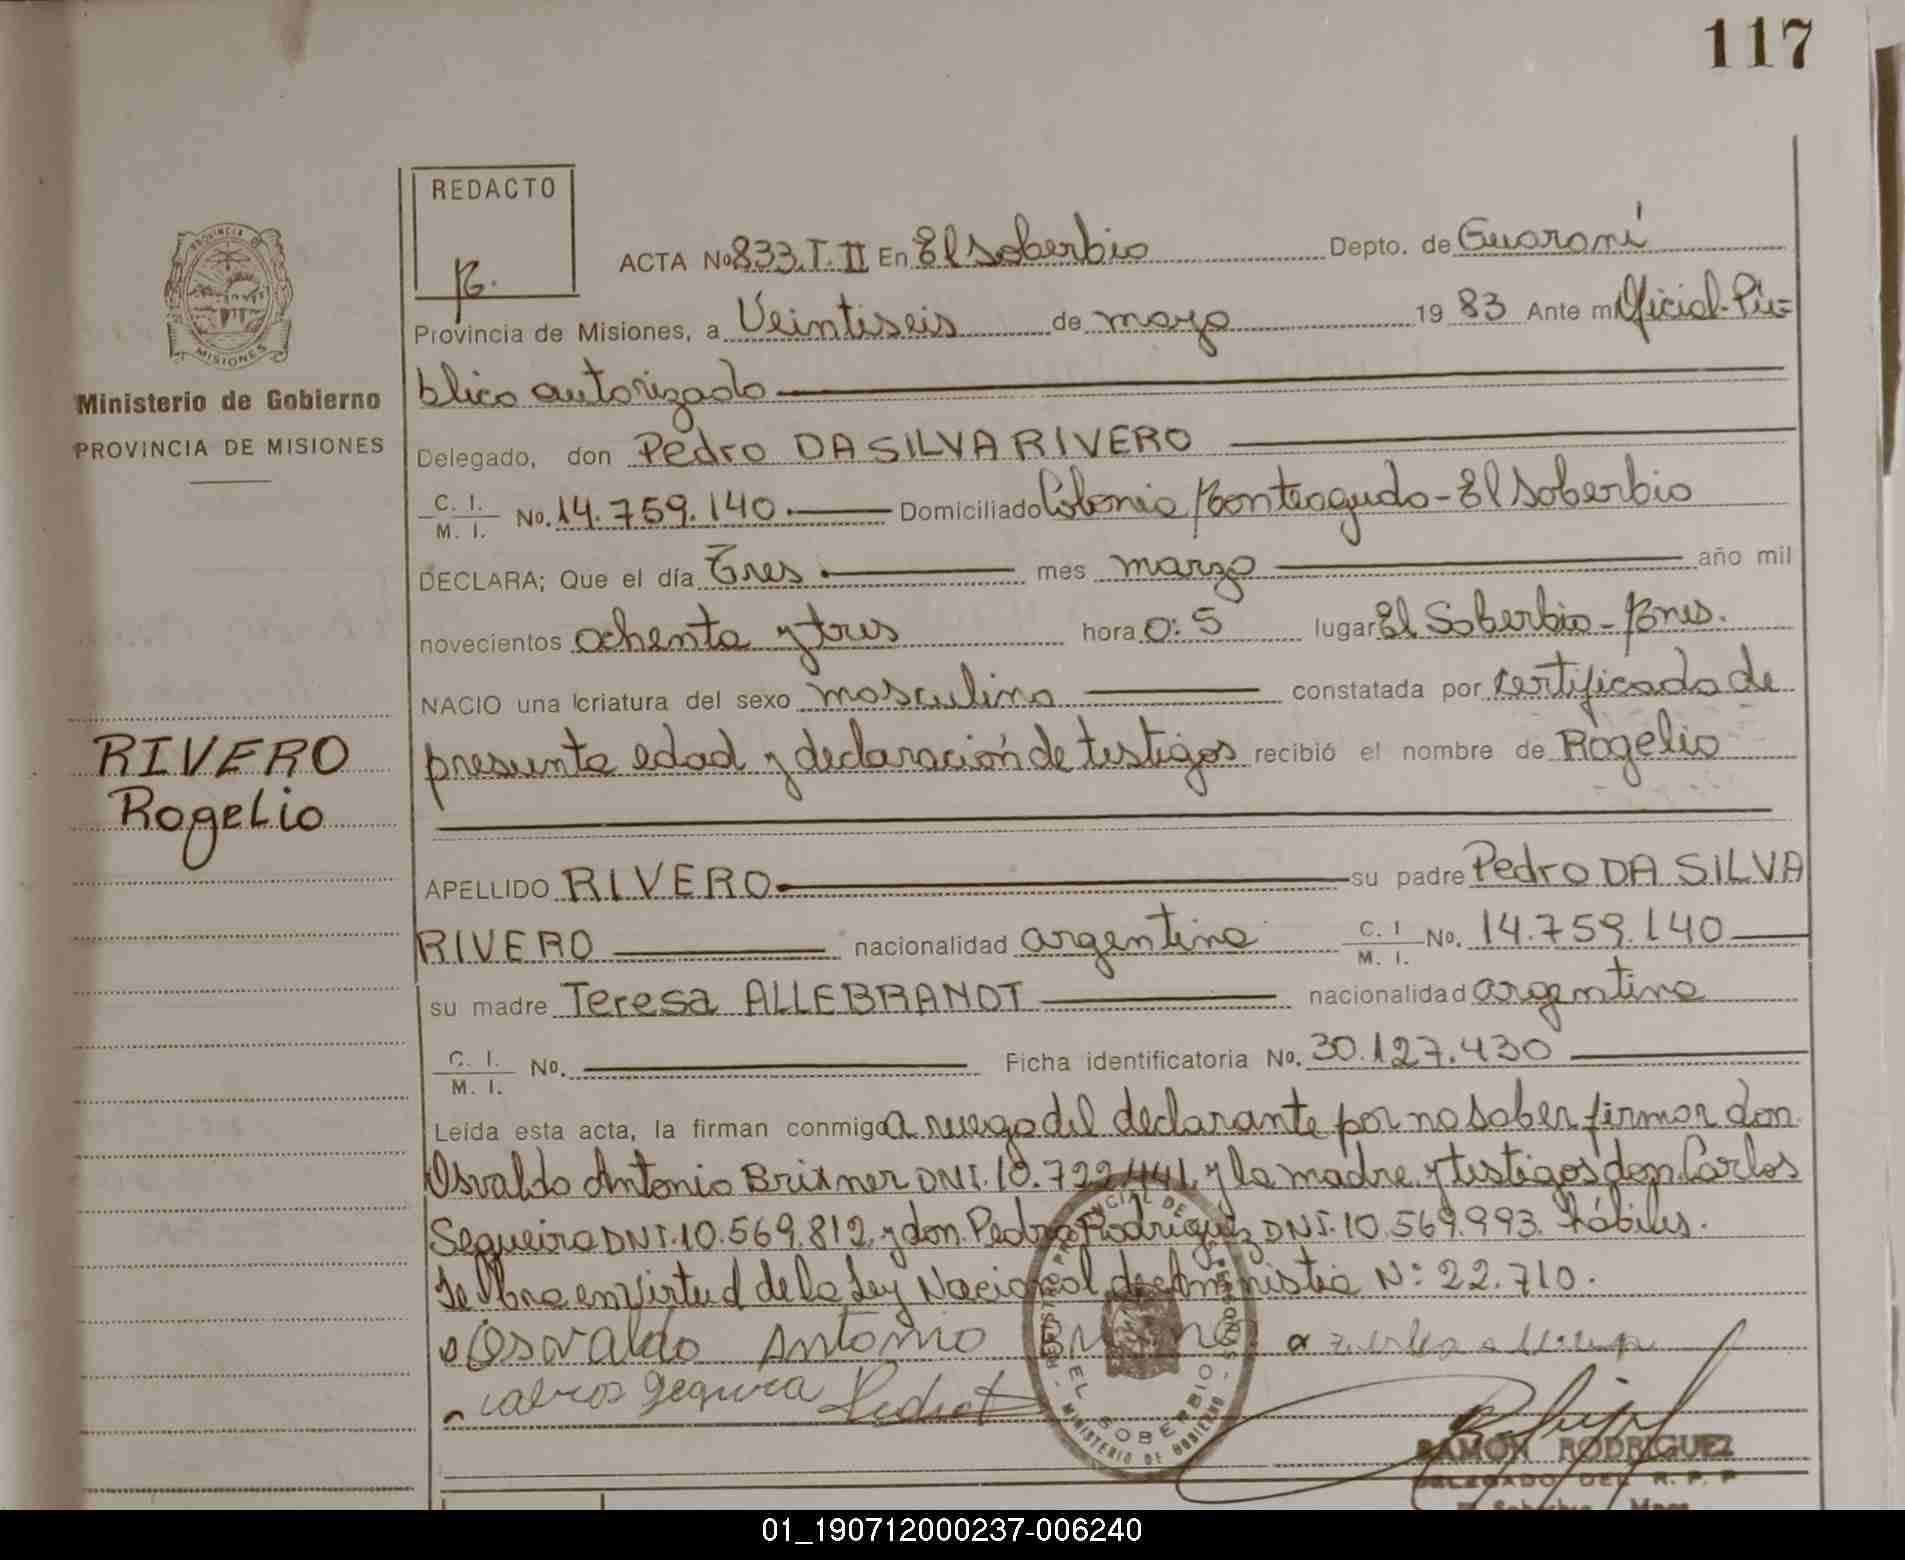 117
REDACTO
R.
ACTA No 833.T.II En El Soberbio Depto. de Guaraní
Provincia de Misiones, a Veintiseis de mayo 1983 Ante mí Oficial Pú=
blico autorizado
Delegado, don Pedro DA SILVA RIVERO
C. I.
M. I. No. 14.759.140. Domiciliado Colonia Monteagudo - El Soberbio
DECLARA; Que el día Tres mes marzo año mil
novecientos ochenta y tres hora 0:5 lugar El Soberbio - Mnes.
NACIO una criatura del sexo masculino constatada por certificado de
presunta edad y declaración de testigos recibió el nombre de Rogelio
APELLIDO RIVERO su padre Pedro DA SILVA
RIVERO nacionalidad argentina C. I
M. I. No. 14.759.140
su madre Teresa ALLEBRANDT nacionalidad argentina
C. I.
M. I. No. Ficha identificatoria No. 30.127.430
Leída esta acta, la firman conmigo a ruego del declarante por no saber firmar don
Osvaldo Antonio Brixner DNI.10.722.441 y la madre y testigos don Carlos
Segueira DNI.10.569.812 y don Pedro Rodriguez DNI.10.569.993. hábiles.
Se labra en virtud de la Ley Nacional de Amnistia N: 22.710.
Osvaldo Antonio
PROVINCIA
MISIONES
Ministerio de Gobierno
PROVINCIA DE MISIONES
RIVERO
Rogelio
EL SOBERBIO
MINISTERIO DE GOBIERNO
RAMON RODRIGUEZ
DELEGADO DEL R. P. P
01_190712000237-006240